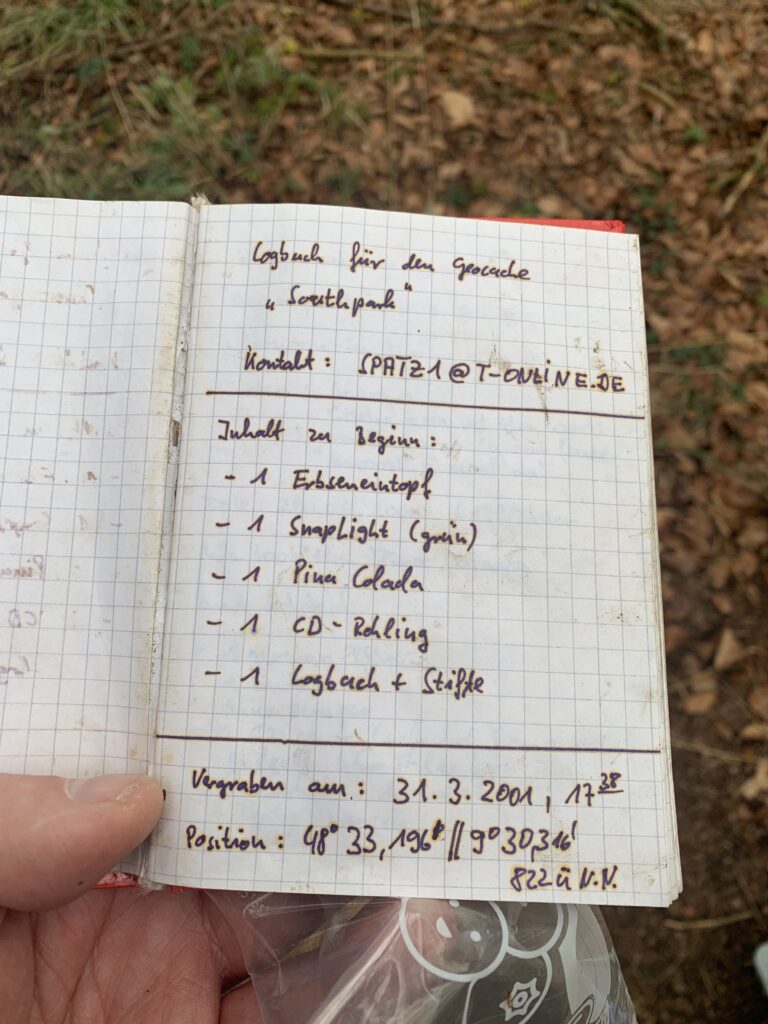 Logbuch für den Geocache
„Southpark"
Kontakt: SPATZ1@T-ONLINE.DE
Inhalt zu Beginn:
- 1 Erbseneintopf
- 1 SnapLight (grün)
- 1 Pina Colada
- 1 CD-Rohling
- 1 Logbuch + Stifte
Vergraben am: 31.3.2001, 17 38
Position: 48° 33,196' || 9° 30,316'
822 ü N.N.